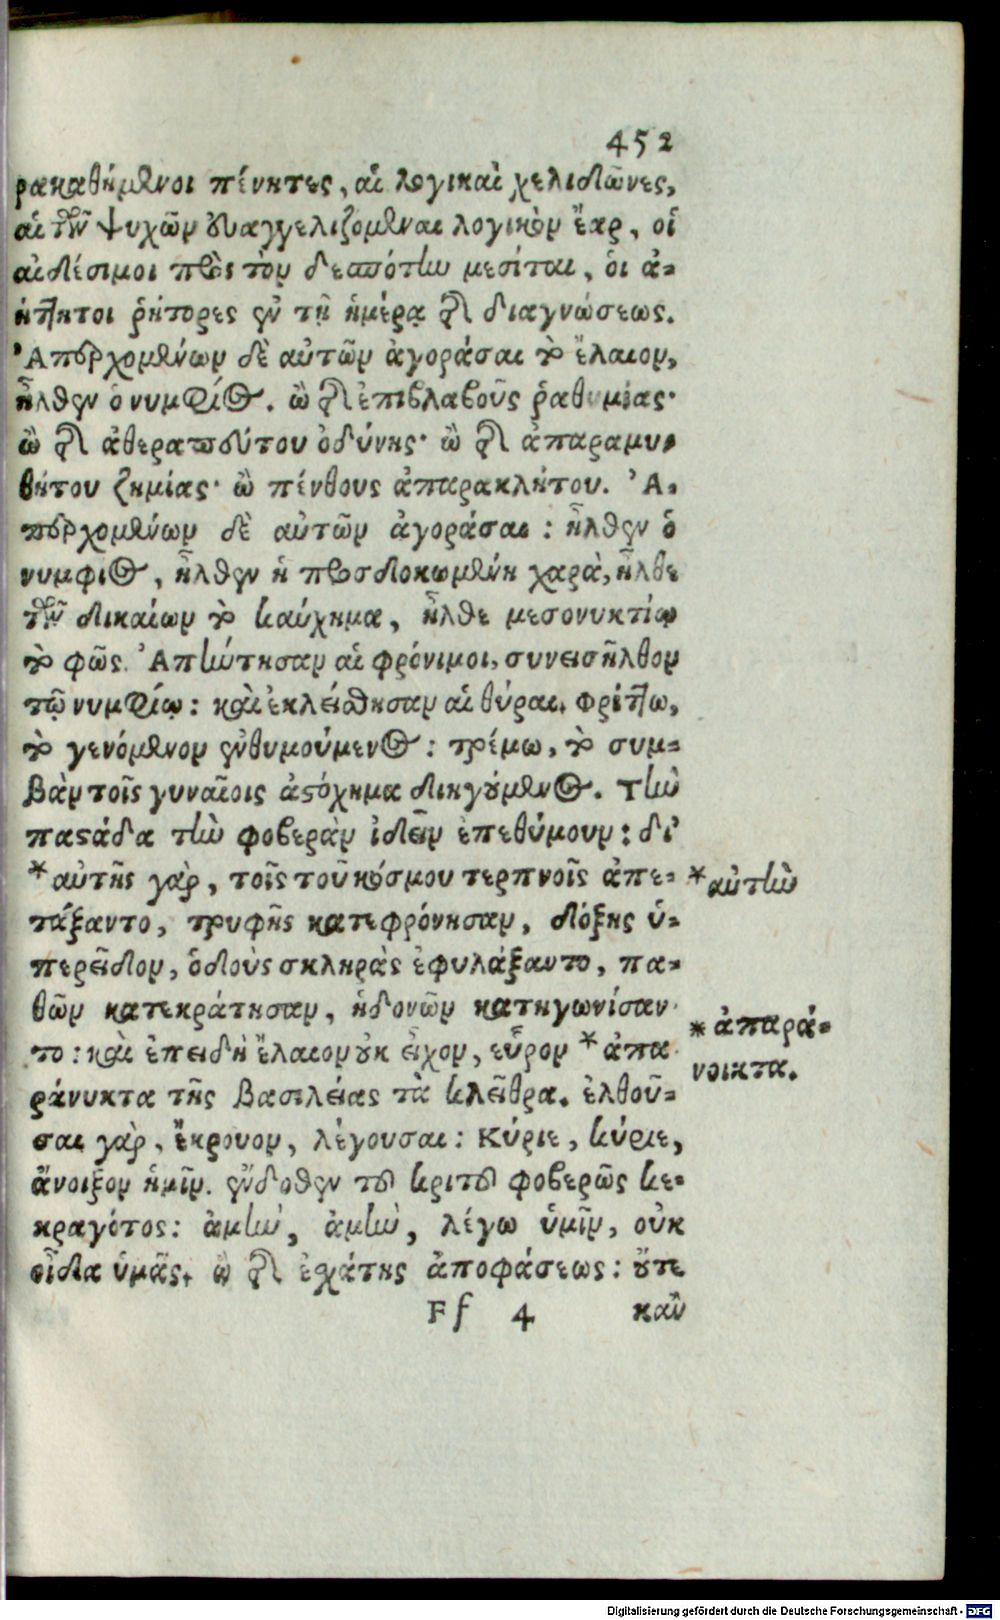 452
ρακαθήμενοι πένητες, αἱ λογικαὶ χελιδῶνες,
αἱ τῶν ψυχῶν εὐαγγελιζομεναι λογικὸν ἔαρ, οἱ
αἰδέσιμοι πρὸς τὸν δεσπότην μεσίται, ὁι ἀ-
ήττητοι ῥήτορες ἐν τῇ ἡμέρᾳ τῆς διαγνώσεως.
Ἀπερχομένων δὲ αὐτῶν ἀγοράσαι τὸ ἔλαιον,
ἦλθεν ὁ νυμφίος. ὢ τῆς ἐπιβλαβοῦς ῥαθυμίας·
ὢ τῆς ἀθεραπεύτου ὀδύνης· ὢ τῆς ἀπαραμυ-
θήτου ζημίας· ὢ πένθους ἀπαρακλήτου. Ἀ-
περχομένων δὲ αὐτῶν ἀγοράσαι: ἦλθεν ὁ
νυμφίος, ἦλθεν ἡ προσδοκωμένη χαρὰ, ἦλθε
τῶν δικαίων τὸ καύχημα, ἦλθε μεσονυκτίῳ
τὸ φῶς. Ἀπήντησαν αἱ φρόνιμοι, συνεισῆλθον
τῷ νυμφίῳ: καὶ ἐκλείσθησαν αἱ θύραι. φρίττω,
τὸ γενόμενον ἐνθυμούμενος: τρέμω, τὸ συμ-
βὰν τοῖς γυναίοις ἀστόχημα διηγούμενος. Τὴν
παστάδα τὴν φοβερὰν ἰδεῖν ἐπεθύμουν: δι'
*αὐτῆς γὰρ, τοῖς τοῦ κόσμου τερπνοῖς ἀπε-
τάξαντο, τρυφῆς κατεφρόνησαν, δόξης ὑ-
περεῖδον, ὁδοὺς σκληρὰς ἐφυλάξαντο, πα-
θῶν κατεκράτησαν, ἡδονῶν κατηγωνίσαν
το: καὶ ἐπειδὴ ἔλαιον οὐκ εἶχον, εὗρον *ἀπα
ράνυκτα τῆς βασιλείας τὰ κλεῖθρα. ἐλθοῦ-
σαι γὰρ, ἔκρουον, λέγουσαι: Κύριε, κύριε,
ἄνοιξον ἡμῖν. ἔνδοθεν τοῦ κριτοῦ φοβερῶς κε-
κραγότος: ἀμὴν, ἀμὴν, λέγω ὑμῖν, οὐκ
οἶδα ὑμᾶς. ὢ τῆς ἐσχάτης ἀποφάσεως: οὔτε
Ff 4 καὶ
*αὐτὴν
*ἀπαρά-
νοικτα.
Digitalisierung gefördert durch die Deutsche Forschungsgemeinschaft - DFG